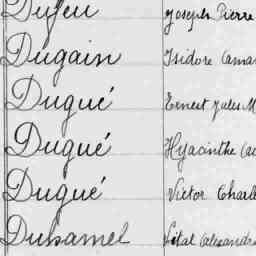 Dufeu Joseph Pierre
Dugain Isidore
Dugué Ernest Jules M
Dugué Hyacinthe
Dugué Victor Charl
Duhamel Vital Alexandre